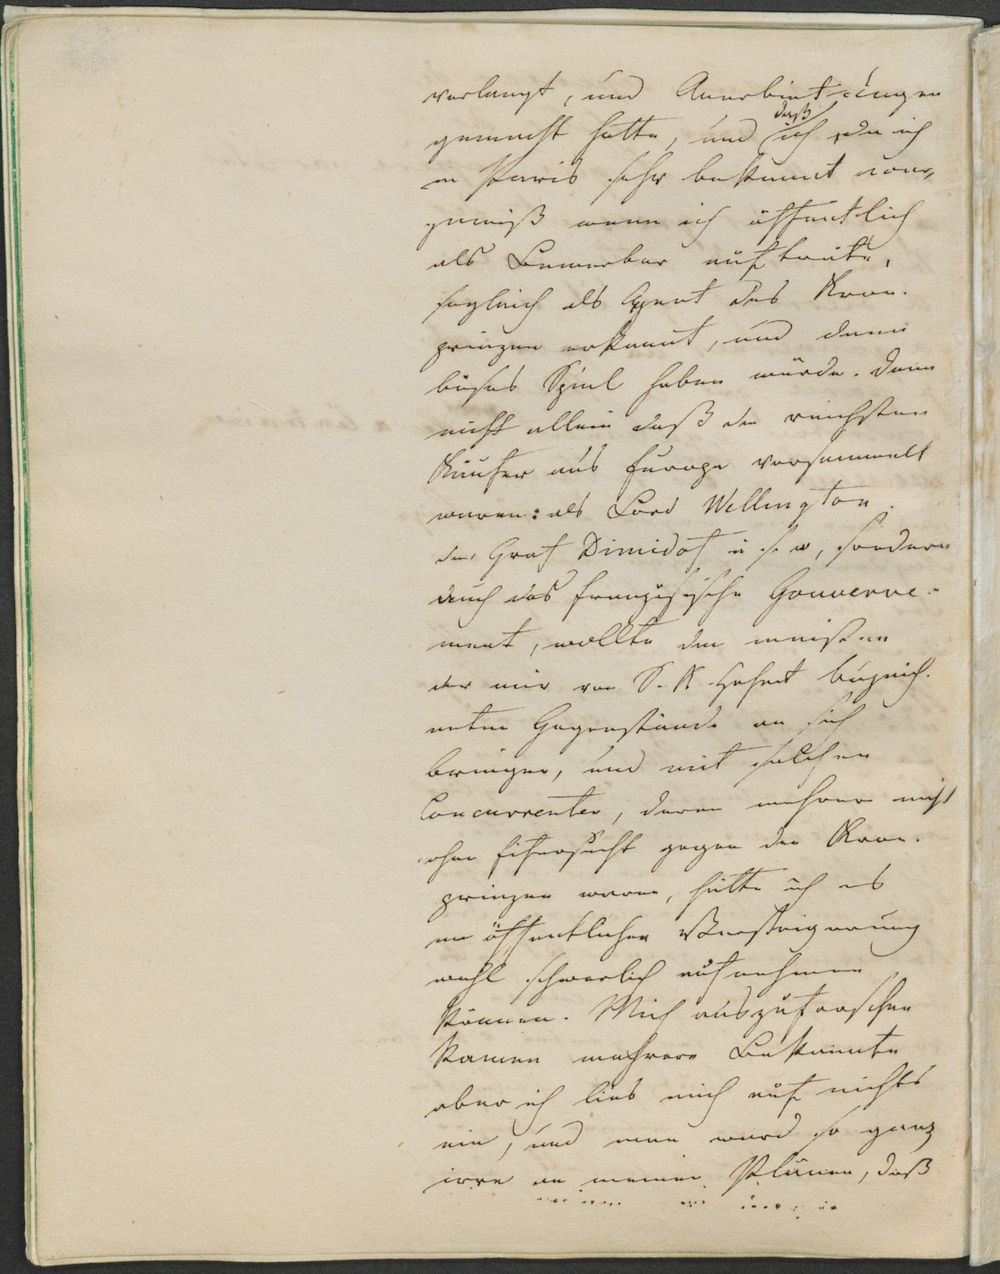 verlangt, und Anerbietungen
gemacht hatte, und daß ich, da ich
in Paris sehr bekannt war,
gewiß wenn ich öffentlich
als Bewerber aufträte,
sogleich als Agent des Kron-
prinzen erkannt, und dann
böses Spiel haben würde. Denn
nicht allein daß die reichsten
Käufer aus Europa versammelt
waren: als Lord Wellington
der Graf Dimidof u s. w, sondern
auch das französische Gouverne-
ment, wollte die meisten
der mir von S. K. Hoheit bezeich-
neten Gegenstände an sich
bringen, und mit solchen
Concurrenten, deren mehrere nicht
ohne Eifersucht gegen den Kron-
prinzen waren, hätte ich es
in öffentlicher Versteigerung
wohl schwerlich aufnehmen
können. Mich auszuforschen
kamen mehrere Bekannte
aber ich lies mich auf nichts
ein, und man ward so ganz
irre an meinen Plänen, daß